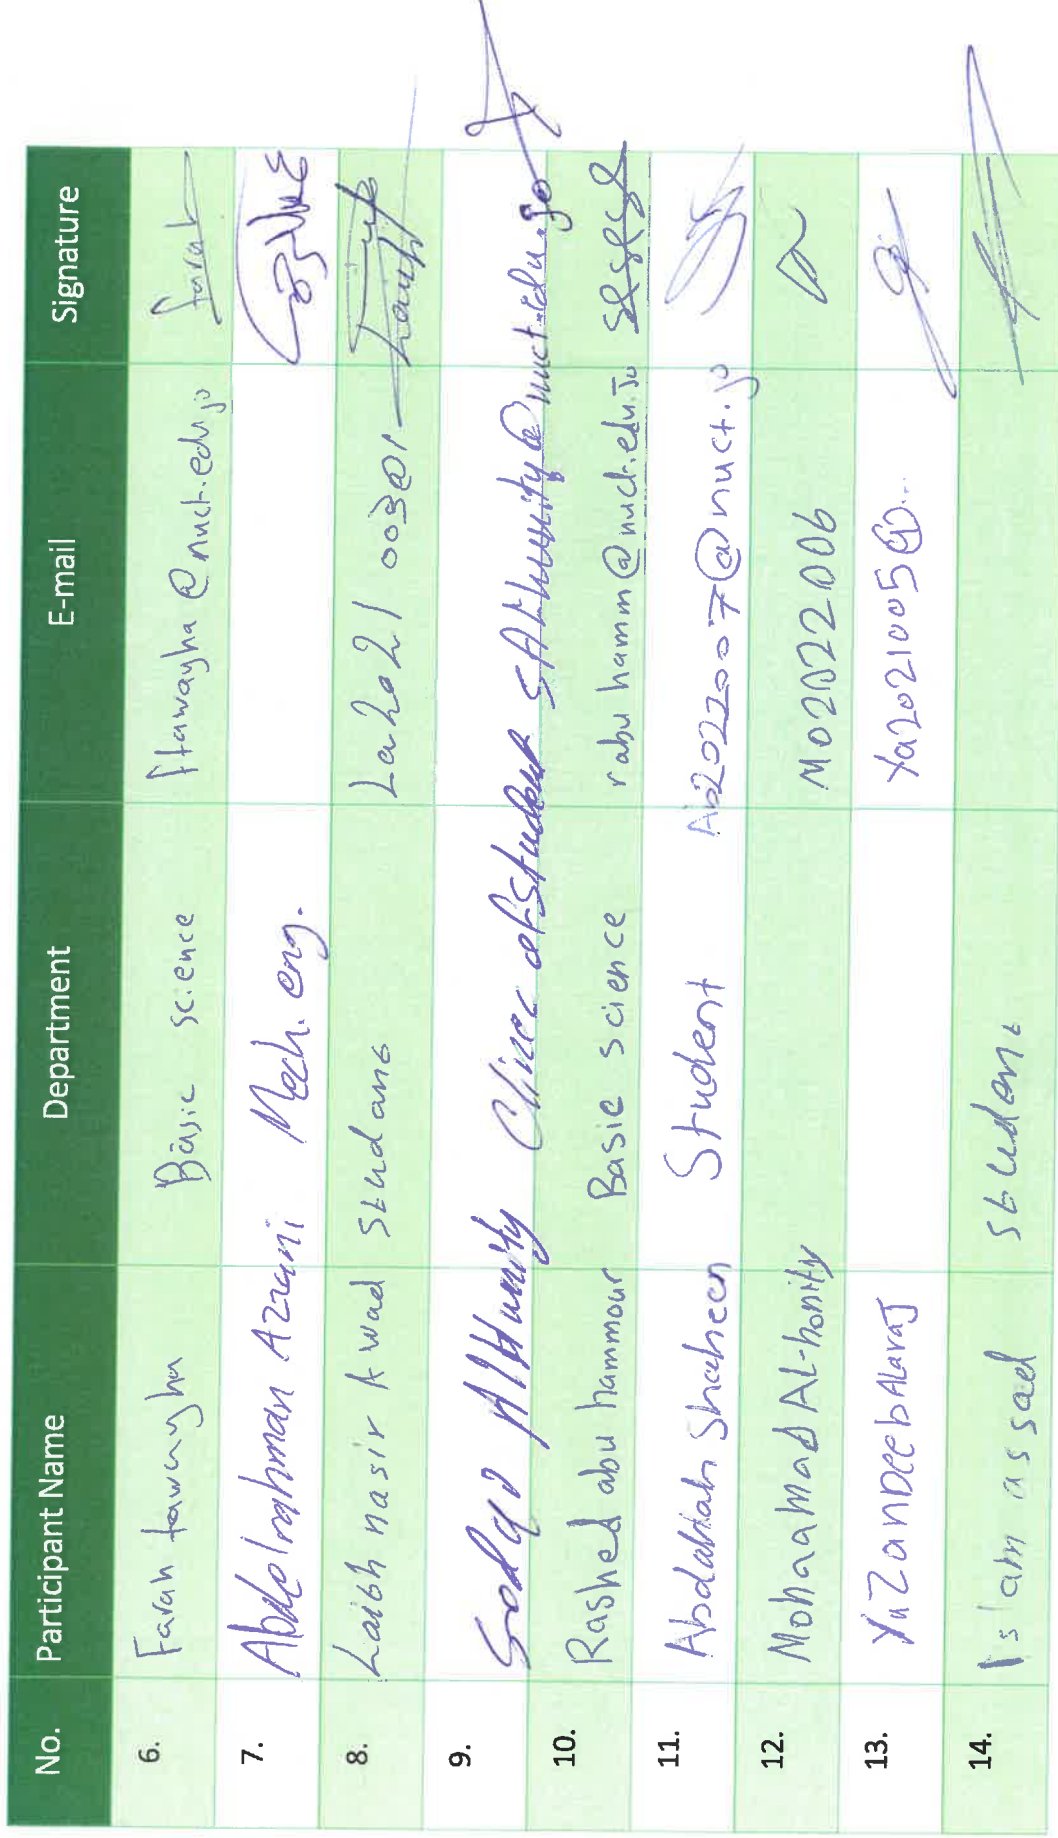 No. Participant Name Department E-mail Signature
6. Farah tawayha Basic science ftawayha@nuct.edu.jo farah
7. Abdelrahman Azzani Mech. eng.
8. Laibh nasir Awad Studant La2021003@1
9. AlHunity Clinec of student SAlhunity@nuct.edu.jo
10. Rashed abu hammour Basic science rabuhamm@nuct.edu.Jo
11. Abdallah Shaheen Student Ab2022007@nuct.jo
12. Mohaamad AL-honity Mo2022006
13. YaZan Deeb ALaraj Ya2021005@...
14. Islam assad student